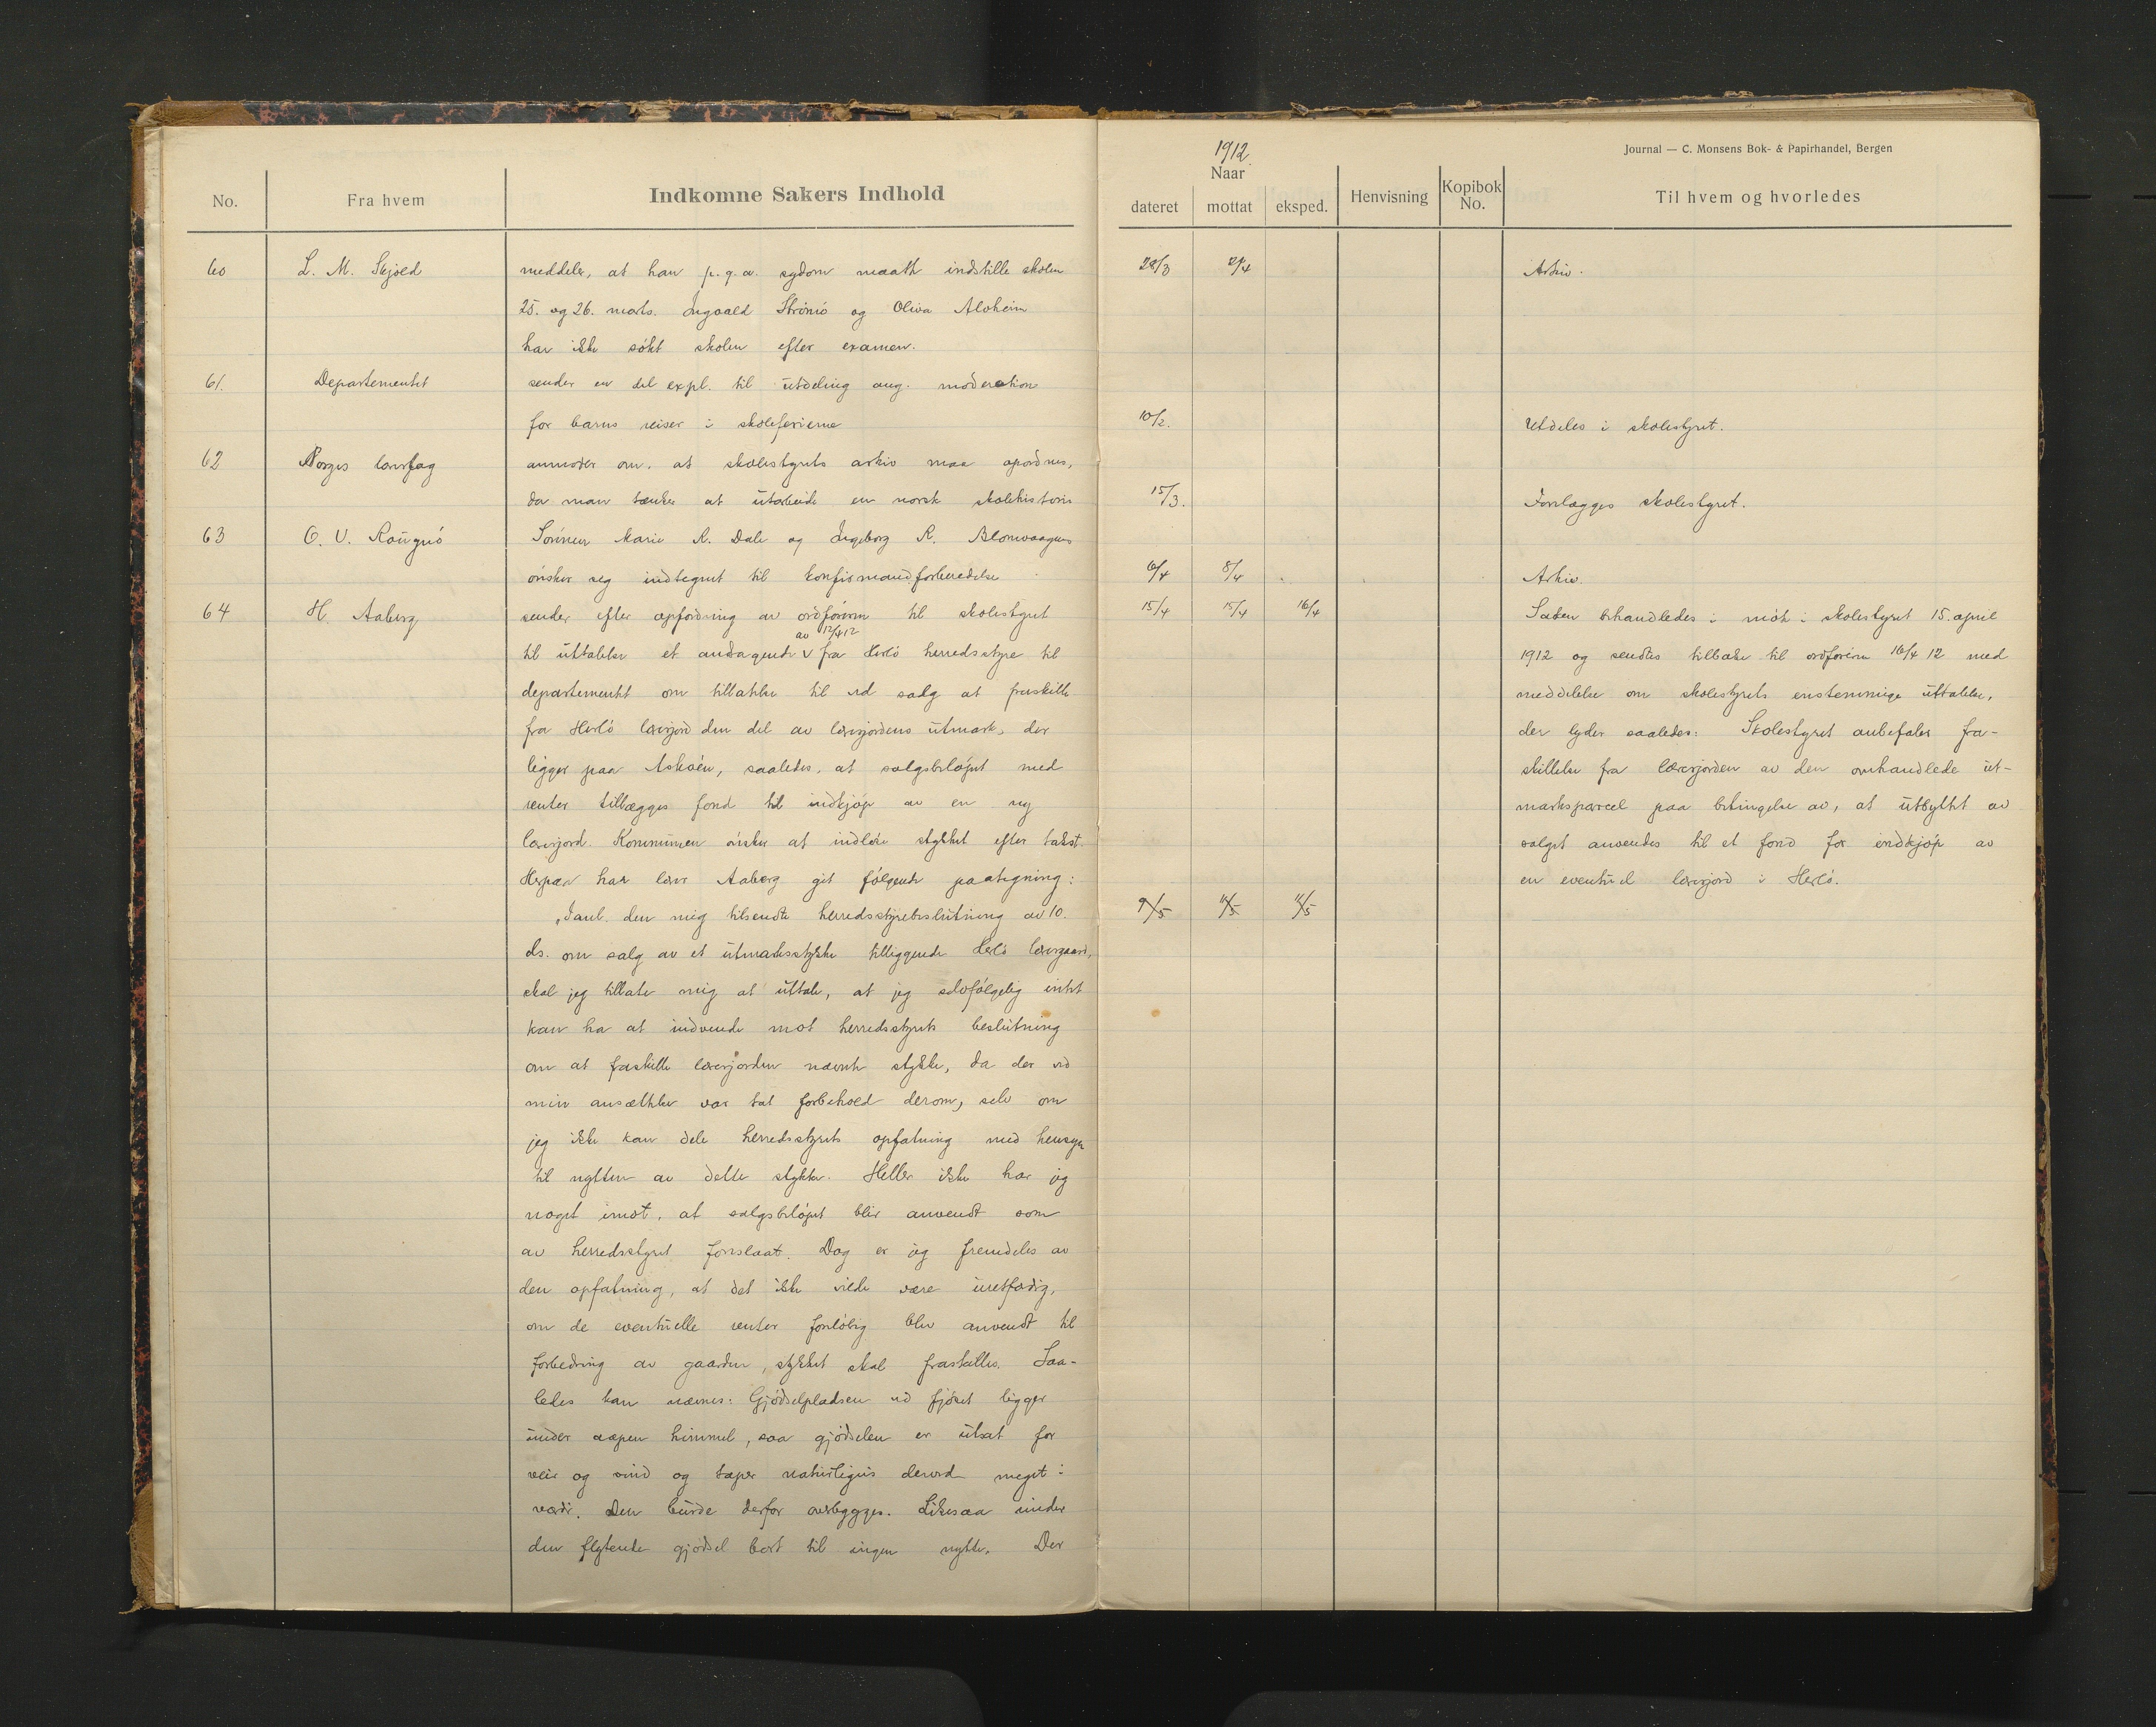 1912.
Journal — C. Monsens Bok- & Papirhandel, Bergen
No.
Fra hvem
Indkomne Sakers Indhold
Naar
dateret
mottat
eksped.
Henvisning
Kopibok No.
Til hvem og hvorledes
60 L. M. Skjold meddeler, at han p. g. a. sygdom maatte indstille skolen 28/3 2/4 Arkiv.
25. og 26. marts. Ingvald Strömö og Oliva Alvheim
har ikke sökt skolen efter examen.
61. Departementet sender en del expl. til utdeling ang. moderation
for barns reiser i skoleferierne 10/2. Utdeles i skolestyret.
62 Norges lærerlag anmoder om, at skolestyrets arkiv maa opordnes,
da man tænker at utarbeide en norsk skolehistorie 15/3. Forelægges skolestyret.
63 O. V. Rougnö Sönnen Marie R. Dale og Ingeborg R. Blomvaagnes
önsker seg indtegnet til konfirmandforberedelse 6/4 8/4 Arkiv.
64 H. Aaberg sender efter opfordring av ordföreren til skolestyret 15/4 15/4 16/4 Saken behandledes i möte i skolestyret 15. april
av 12/4 12
til uttalelse et andragende V fra Herlö herredsstyre til 1912 og sendtes tilbake til ordföreren 16/4 12 med
departementet om tillatelse til ved salg at fraskille meddelelse om skolestyrets enstemmige uttalelse,
fra Herlö lærerjord den del av lærerjordens utmark, der der lyder saaledes: Skolestyret anbefaler fra-
ligger paa Askøen, saaledes, at salgsbeløpet med skillelse fra lærerjorden av den omhandlede ut-
renter tillægges fond til indkjøp av en ny marksparcel paa betingelse av, at utbyttet av
lærerjord. Kommunen önsker at indløse stykket efter takst. salget anvendes til et fond for indkjøp av
Herpaa har lærer Aaberg git følgende paategning: en eventuel lærerjord i Herlö.
„Ianl. den mig tilsendte herredsstyrebeslutning av 10. 9/5 11/5 11/5
ds. om salg av et utmarksstykke tilliggende Herlö lærergaard,
skal jeg tillate mig at uttale, at jeg selvfølgelig intet
kan ha at indvende mot herredsstyrets beslutning
om at fraskille lærerjorden nævnte stykke, da der ved
min ansættelse var tat forbehold derom, selv om
jeg ikke kan dele herredsstyrets opfatning med hensyn
til nytten av dette stykke. Heller ikke har jeg
noget imot, at salgsbeløpet blir anvendt som
av herredsstyret foreslaat. Dog er jeg fremdeles av
den opfatning, at det ikke vilde være uretfærdig,
om de eventuelle renter foreløbig blev anvendt til
forbedring av gaarden, stykket skal fraskilles. Saa-
ledes kan nævnes: Gjødselpladsen ved fjøset ligger
under aapen himmel, saa gjødselen er utsat for
veir og vind og taper naturligvis derved meget i
værdi. Den burde derfor overbygges. Likesaa rinder
den flytende gjødsel bort til ingen nytte. Der